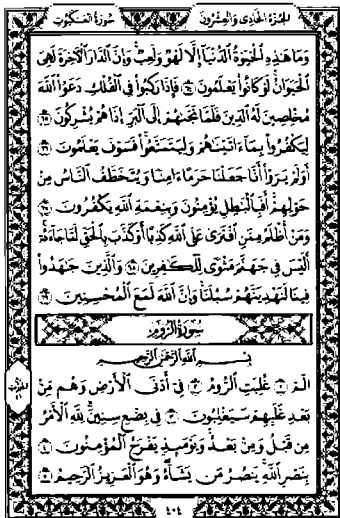 سورة العنكبوت
الجزء الحادي والعشرون
وَمَا هَٰذِهِ ٱلْحَيَوٰةُ ٱلدُّنْيَآ إِلَّا لَهْوٌ وَلَعِبٌ ۚ وَإِنَّ ٱلدَّارَ ٱلْـَٔاخِرَةَ لَهِىَ
ٱلْحَيَوَانُ ۚ لَوْ كَانُوا۟ يَعْلَمُونَ ٦٤ فَإِذَا رَكِبُوا۟ فِى ٱلْفُلْكِ دَعَوُا۟ ٱللَّهَ
مُخْلِصِينَ لَهُ ٱلدِّينَ فَلَمَّا نَجَّىٰهُمْ إِلَى ٱلْبَرِّ إِذَا هُمْ يُشْرِكُونَ ٦٥
لِيَكْفُرُوا۟ بِمَآ ءَاتَيْنَٰهُمْ وَلِيَتَمَتَّعُوا۟ ۖ فَسَوْفَ يَعْلَمُونَ ٦٦
أَوَلَمْ يَرَوْا۟ أَنَّا جَعَلْنَا حَرَمًا ءَامِنًا وَيُتَخَطَّفُ ٱلنَّاسُ مِنْ
حَوْلِهِمْ ۚ أَفَبِٱلْبَٰطِلِ يُؤْمِنُونَ وَبِنِعْمَةِ ٱللَّهِ يَكْفُرُونَ ٦٧
وَمَنْ أَظْلَمُ مِمَّنِ ٱفْتَرَىٰ عَلَى ٱللَّهِ كَذِبًا أَوْ كَذَّبَ بِٱلْحَقِّ لَمَّا جَآءَهُۥٓ ۚ
أَلَيْسَ فِى جَهَنَّمَ مَثْوًى لِّلْكَٰفِرِينَ ٦٨ وَٱلَّذِينَ جَٰهَدُوا۟
فِينَا لَنَهْدِيَنَّهُمْ سُبُلَنَا ۚ وَإِنَّ ٱللَّهَ لَمَعَ ٱلْمُحْسِنِينَ ٦٩
سورة الروم
بِسْمِ ٱللَّهِ ٱلرَّحْمَٰنِ ٱلرَّحِيمِ
الٓمٓ ١ غُلِبَتِ ٱلرُّومُ ٢ فِىٓ أَدْنَى ٱلْأَرْضِ وَهُم مِّنۢ
بَعْدِ غَلَبِهِمْ سَيَغْلِبُونَ ٣ فِى بِضْعِ سِنِينَ ۗ لِلَّهِ ٱلْأَمْرُ
مِن قَبْلُ وَمِنۢ بَعْدُ ۚ وَيَوْمَئِذٍ يَفْرَحُ ٱلْمُؤْمِنُونَ ٤
بِنَصْرِ ٱللَّهِ ۚ يَنصُرُ مَن يَشَآءُ ۖ وَهُوَ ٱلْعَزِيزُ ٱلرَّحِيمُ ٥
٤٠٤